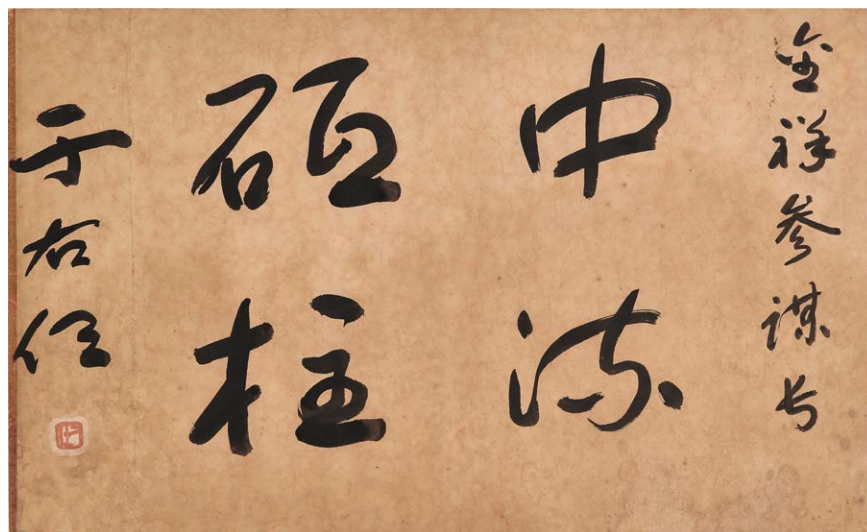 金祥參謀長
中流
砥柱
于右任